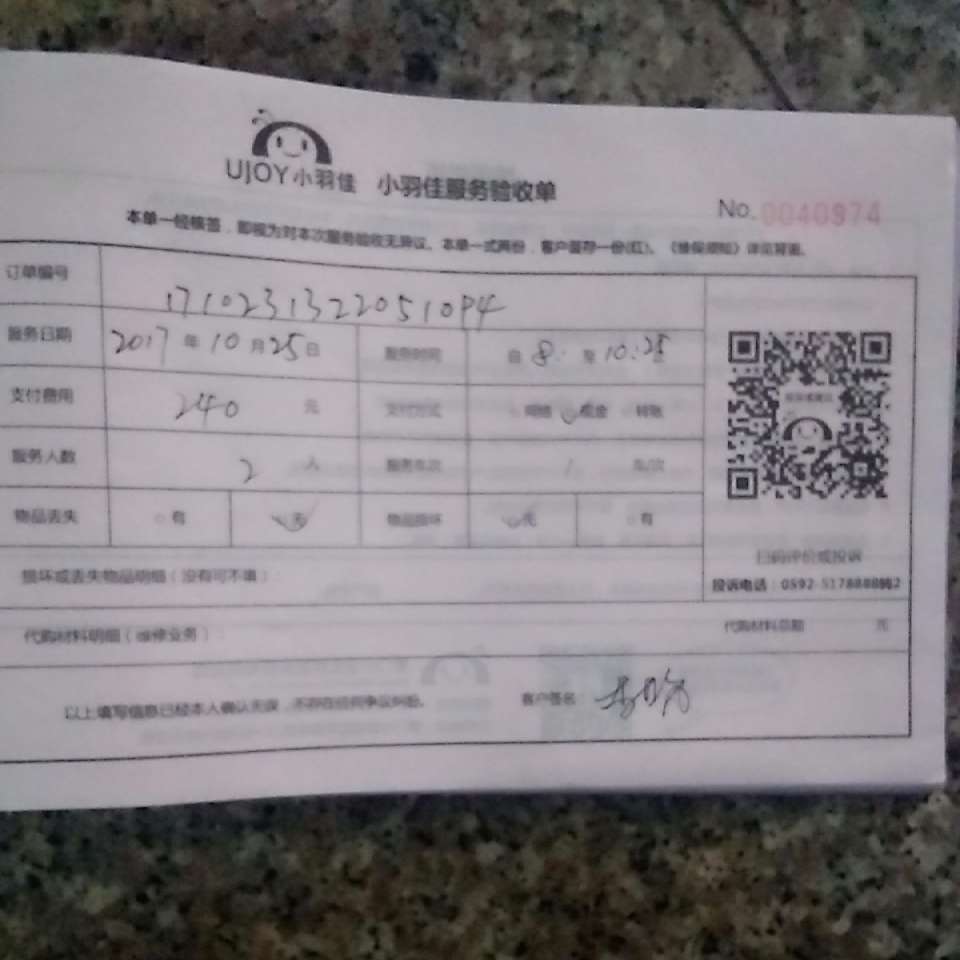 UJOY小羽佳 小羽佳服务验收单
No. 0040974
本单一经核签，即视为对本次服务验收无异议。本单一式两份，客户留存一份(红)。《维保须知》详见背面。
订单编号 17102313220510P4
服务日期 2017年10月25日 服务时间 自8: 至10:25
支付费用 240 元 支付方式 网络 现金 转账
服务人数 2 人 服务车次 1 车/次
物品丢失 有 无 物品损坏 无 有
扫码评价或投诉
损坏或丢失物品明细（没有可不填）:
投诉电话：0592-5178888转2
代购材料明细（维修业务）:
代购材料总额 元
以上填写信息已经本人确认无误，不存在任何争议纠纷。 客户签名: